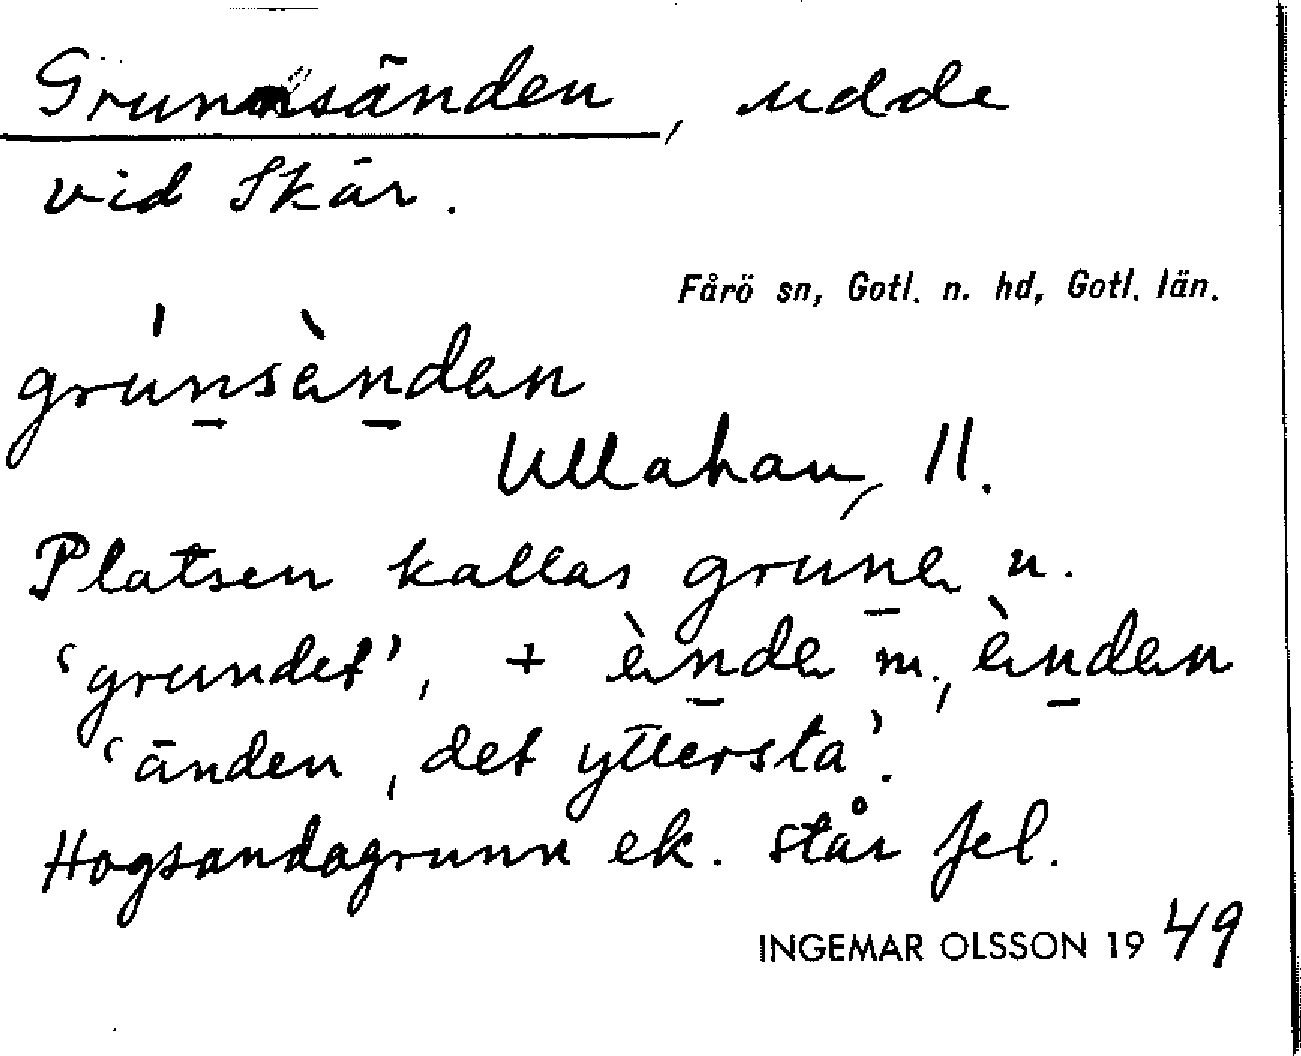 Grunnsänden, udde
vid Skär.
Fårö sn, Gotl. n. hd, Gotl. län.
grúnsèndan
Ullahau, 11.
Platsen kallas grune n.
'grundet', + ènda m., èndan
'änden, det yttersta'.
Hogsandagrunn ek. står fel.
INGEMAR OLSSON 1949